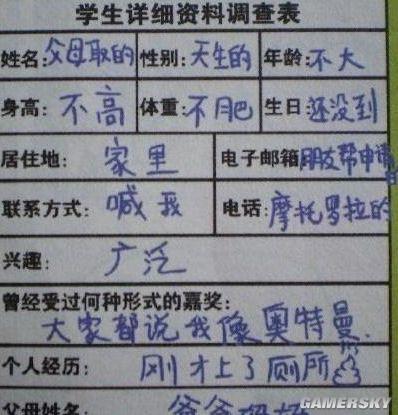 学生详细资料调查表
姓名:父母取的 性别:天生的 年龄:不大
身高:不高 体重:不肥 生日:还没到
居住地:家里 电子邮箱朋友帮申请的
联系方式:喊我 电话:摩托罗拉的
兴趣:广泛
曾经受过何种形式的嘉奖:
大家都说我像奥特曼.
个人经历:刚才上了厕所
父母姓名:爸爸妈妈
GAMERSKY